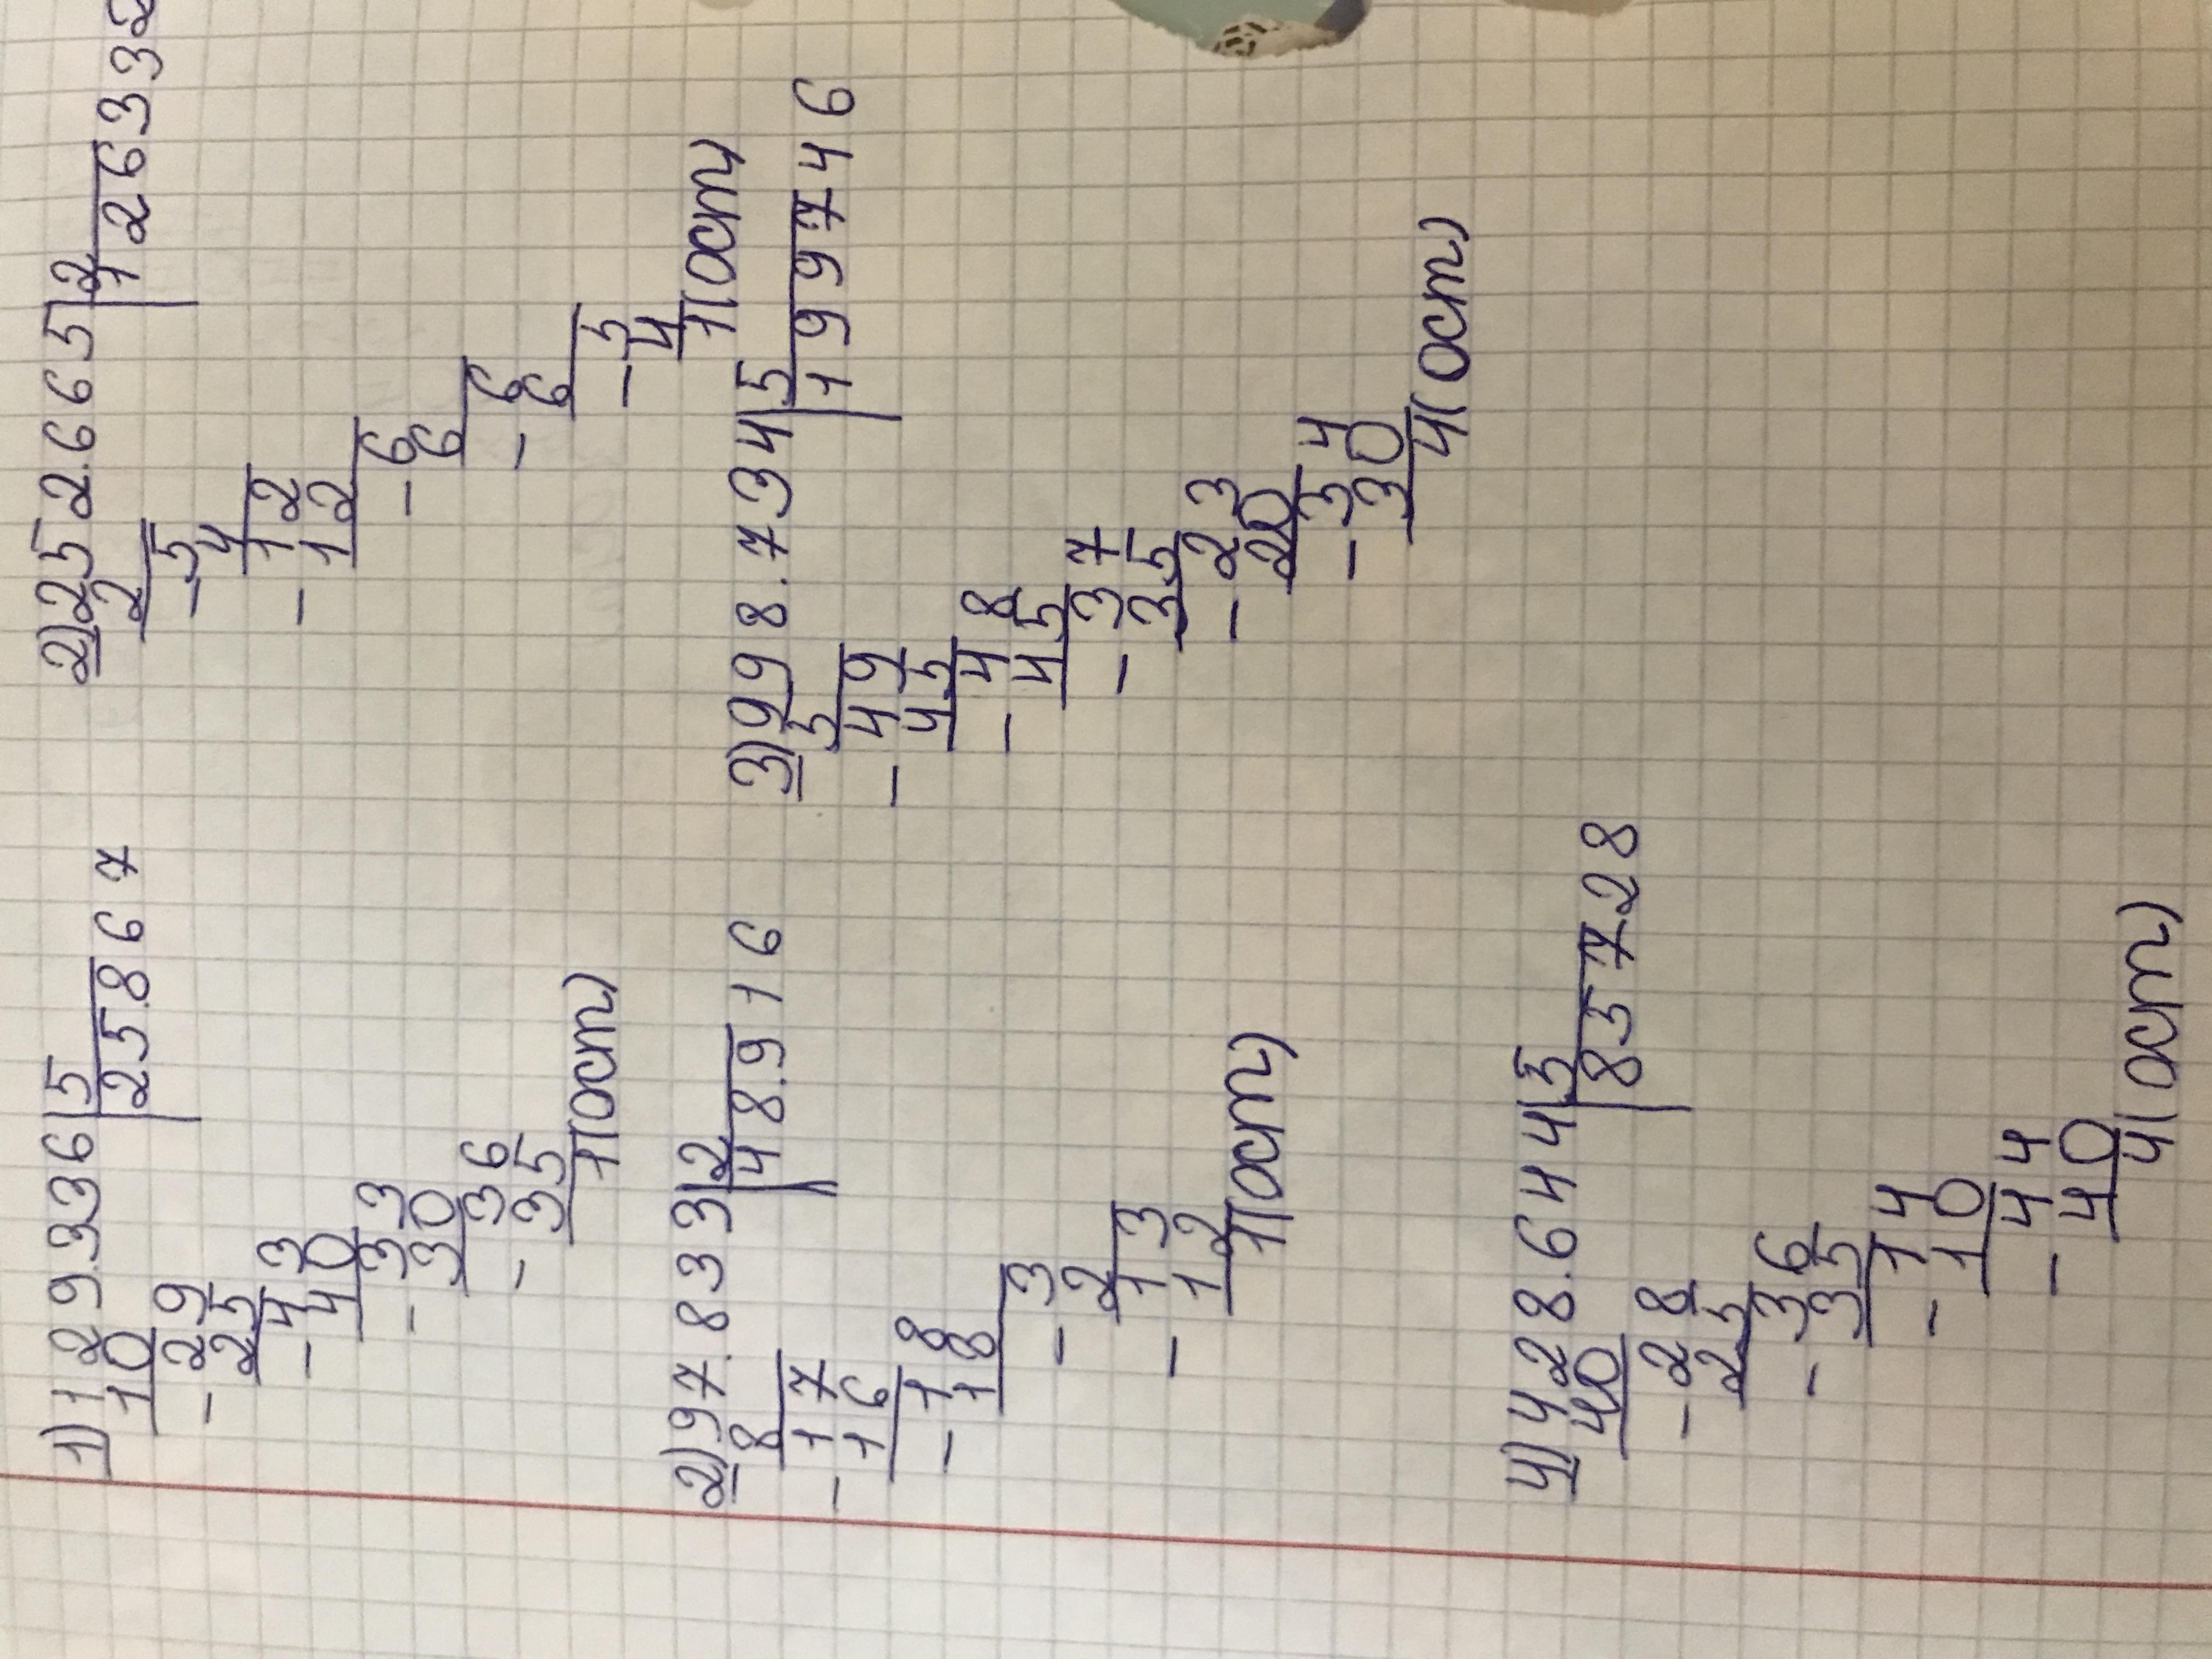 1) 129.336|5
10 25.867
-29
25
-43
40
-33
30
-36
35
1(ост)
2) 252.665|2
2 126332
-5
4
-12
12
-6
6
-6
6
-5
4
1(ост)
2) 97.833|2
8 48.916
-17
16
-18
18
-3
2
-13
12
1(ост)
3) 998.734|5
5 199746
-49
45
-48
45
-37
35
-23
20
-34
30
4(ост)
4) 428.644|5
40 85728
-28
25
-36
35
-14
10
-44
40
4(ост)